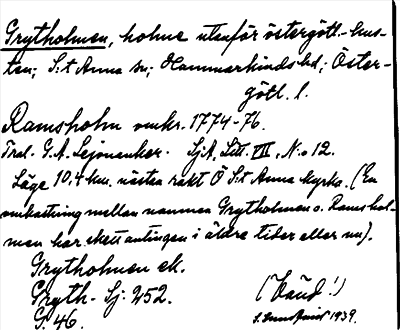 Grytholmen, holme utanför östergötl.-kus-
ten; S:t Anna sn; Hammarkinds hd; Öster-
götl. l.
Ramsholm omkr. 1774-76.
Trol. G.A. Lejonanker. Sj.A, Litt. VII, N:o 12.
Läge 10,4 km. nästan rakt Ö S:t Anna kyrka. (En
omkastning mellan namnen Grytholmen o. Ramshol-
men har skett antingen i äldre tider eller nu).
Grytholmen ek.
Gryth- Sj: 252.
G. 46. 1939.